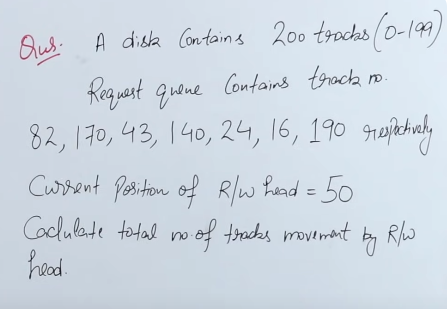 Qus. A disk Contains 200 tracks (0-199)
Request queue Contains track no.
82, 170, 43, 140, 24, 16, 190 respectively
Current Position of R/W head = 50
Caculate total no. of tracks movement by R/W
head.